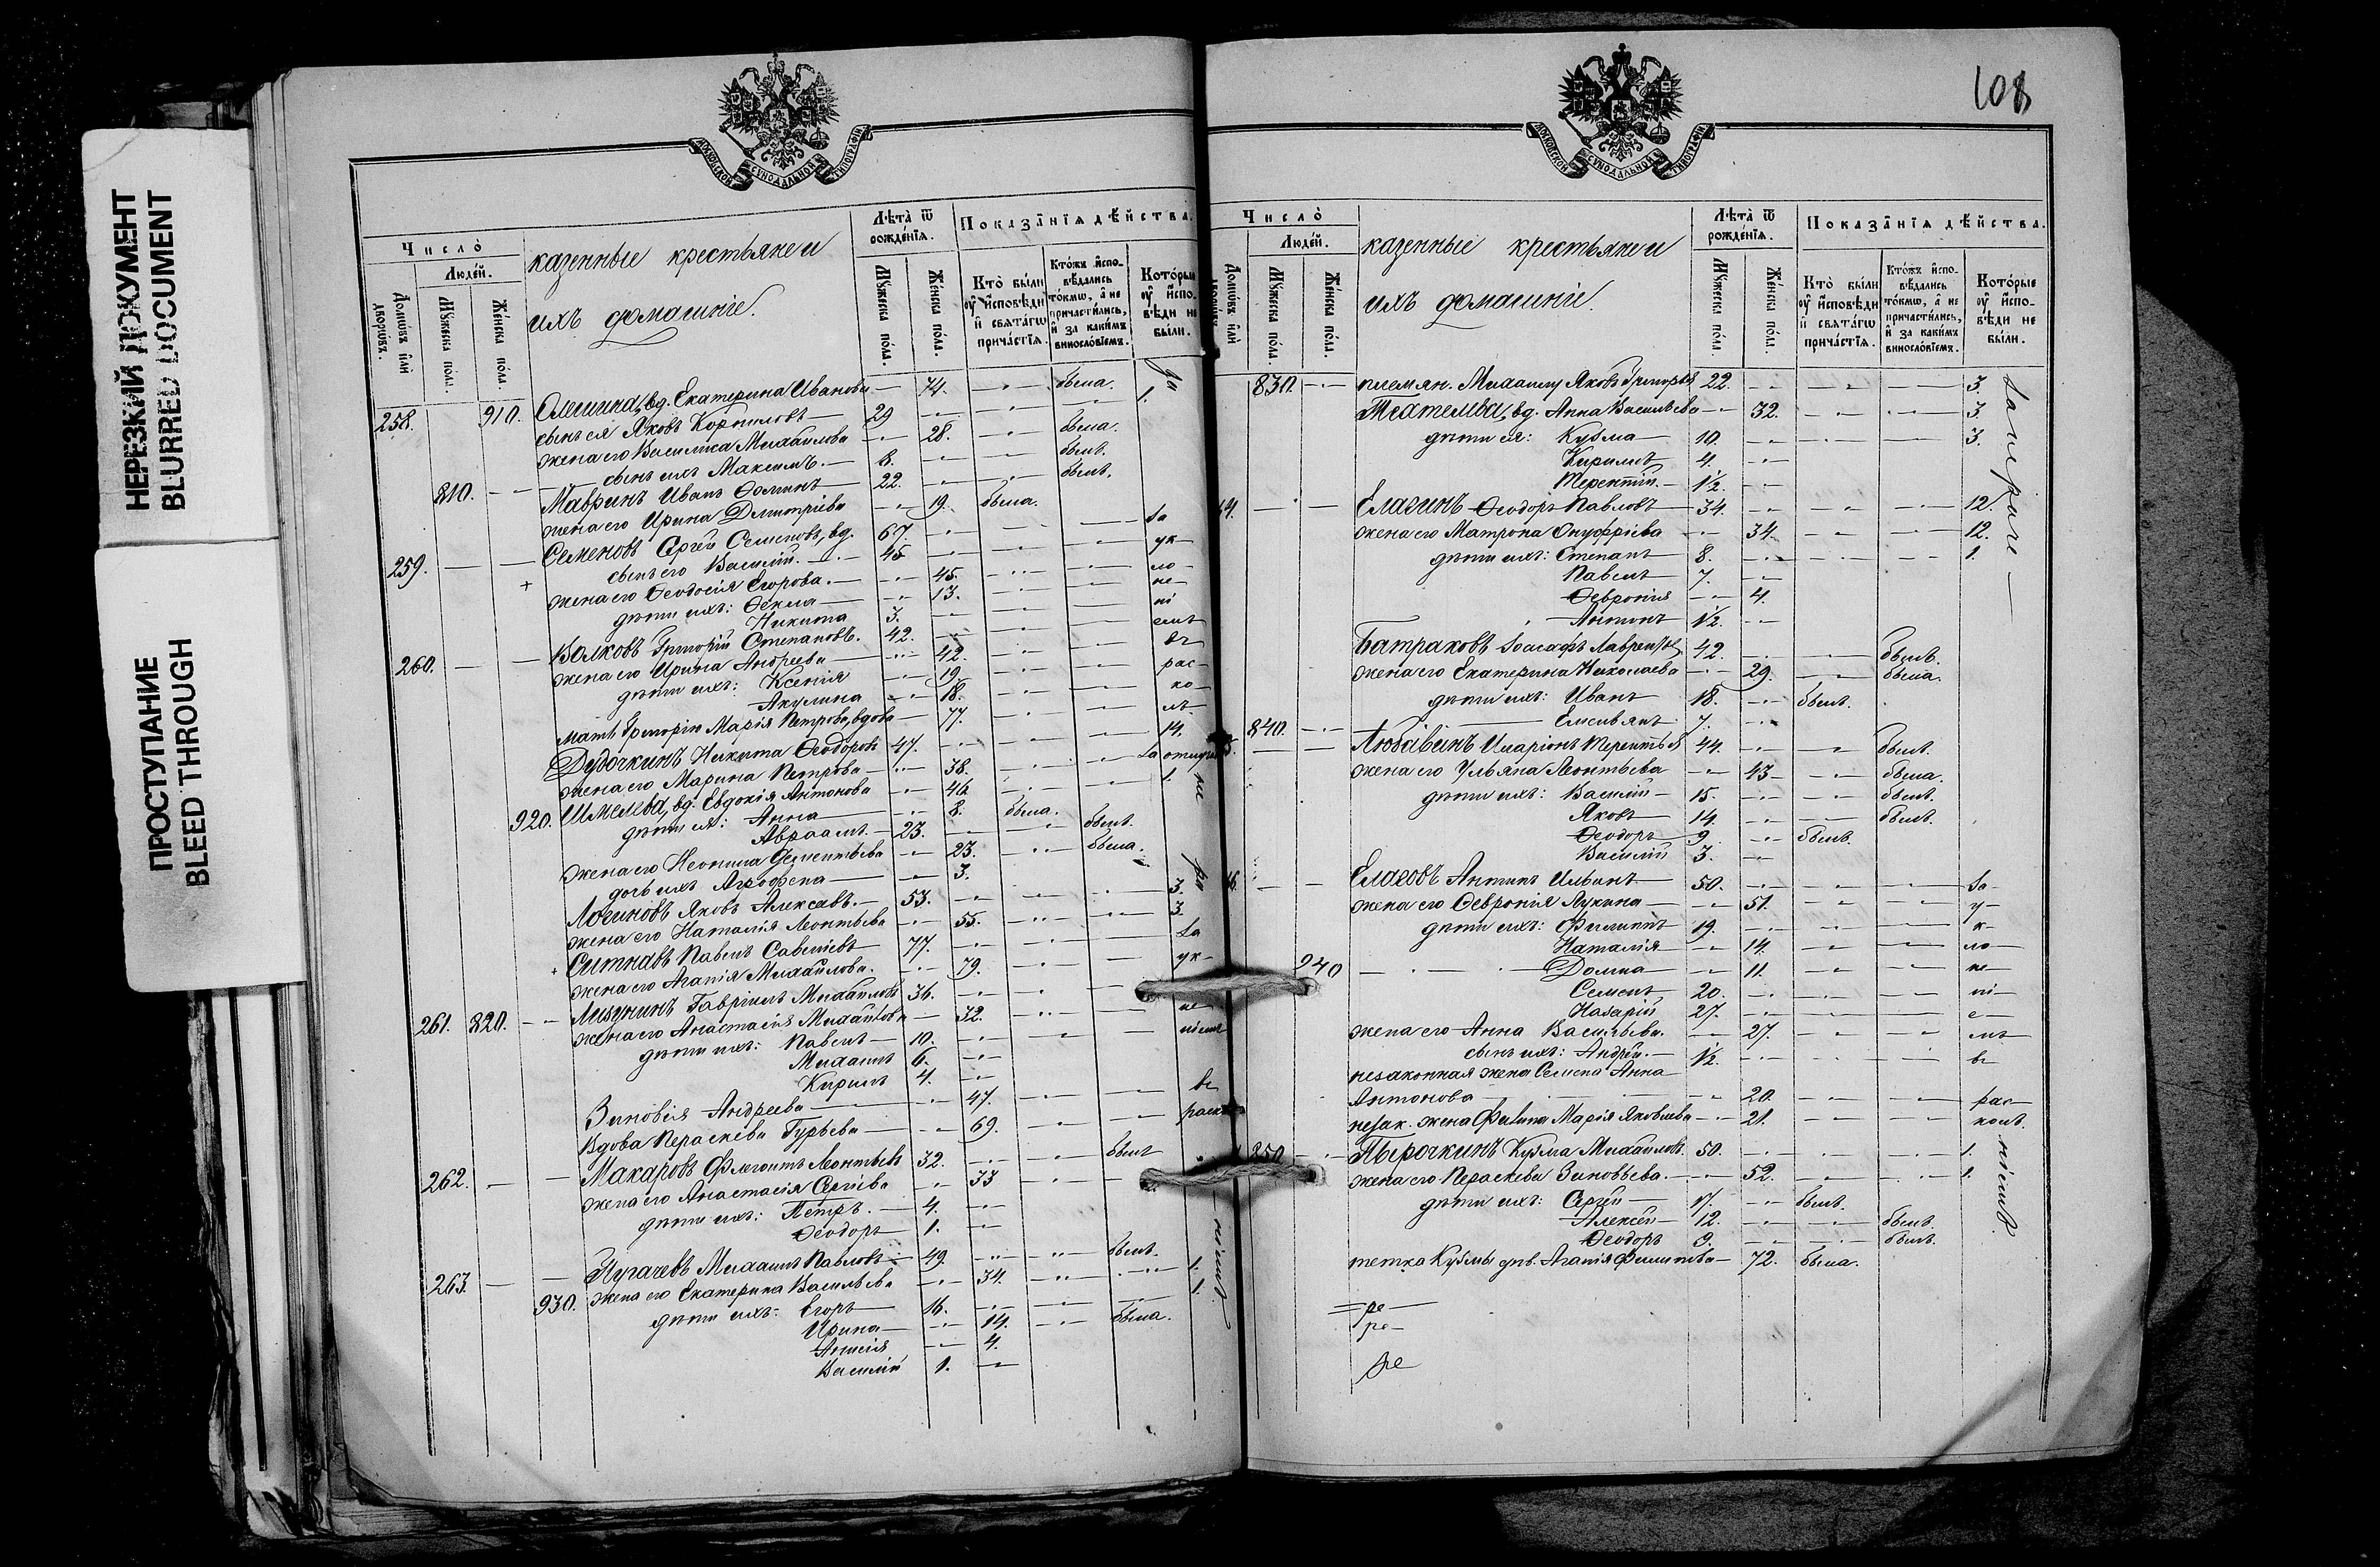 НЕРЕЗКИЙ ДОКУМЕНТ
BLURRED DOCUMENT
ПРОСТУПАНИЕ
BLEED THROUGH
МОСКОВСКОЙ СѴНОДАЛЬНОЙ ТИПОГРАФІИ
Число̀
Люде́й.
Домѡ́въ и҆лѝ дворѡ́въ.
Мꙋ́жеска по́ла.
Же́нска по́ла.
казенные крестьяне и
ихъ домашніе.
Лѣта̀ ѿ рожде́нїѧ.
Мꙋ́жеска по́ла.
Же́нска по́ла.
Показа̑нїѧ дѣ́йства.
Кто̀ бы́ли ᲂу҆ и҆сповѣ́ди и҆ свѧта́гѡ прича́стїѧ.
Кто́жъ и҆спо-вѣ́дались то́кмѡ, а҆ не причасти́лись, и҆ за каки́мъ винosло́вїемъ.
Кото́рые ᲂу҆ и҆спо-вѣди не бы́ли.
258. 910. Олешина, вд. Екатерина Иванова — 74. была.
сынъ ея Яковъ Корниловъ — 29 1.
жена его Василиса Михайлова 28. была.
сынъ ихъ Максимъ. — 8. былъ.
810. Мавринъ Иванъ Ѳоминъ 22. былъ.
жена его Ирина Дмитріева 19. была.
259. Семеновъ Сергѣй Семеновъ, вд. 67. за
сынъ его Василій. 45 ук-
жена его Ѳеодосія Егорова. — 45. ло-
дѣти ихъ: Ѳекла — 13. не-
Никита 3. ні
260. Волковъ Григорій Степановъ. 42. емъ
жена его Ирина Андреева 42. въ
дѣти ихъ: Ксенія 19. рас-
Акулина 18. ко-
мать Григорію Марія Петрова, вдова — 77. лъ
Дудочкинъ Никита Ѳеодоровъ 47. 14.
жена его Марина Петрова — 38.
920. Шмелева, вд. Евдокія Антонова 46 1
дѣти ея: Анна 8. была.
Авраамъ. — 23. былъ.
жена его Неонила 23. была.
дочь ихъ Агрофена — 3.
Логиновъ Яковъ Алексѣевъ. — 53. 3.
жена его Наталія Леонтьева 55. 3.
Ситновъ Павелъ Савельевъ 77. за
жена его Агапія Михайлова. 79. ук-
261. 820. Лизунинъ Гавріилъ Михайловъ 36.
жена его Анастасія Михайлова 32. не
дѣти ихъ: Павелъ — 10. ніемъ
Михаилъ 6.
Кирилъ 4.
Зиновія Андреева 47. въ
Вдова Пераскева Гурьева 69. раск
262. Макаровъ Флегонтъ Леонтьевъ 32. былъ
жена его Анастасія Сергіева 33
дѣти ихъ: Петръ. — 4.
Ѳеодоръ 1.
263. Пугачевъ Михаилъ Павловъ 49. былъ.
930. жена его Екатерина Васильева 34. 1.
дѣти ихъ: Егоръ 16. 1.
Ирина — 14. была.
Анисія 4.
Василій 1.
108
МОСКОВСКОЙ СѴНОДАЛЬНОЙ ТИПОГРАФІИ
Число̀
Люде́й.
Мꙋ́жеска по́ла.
Же́нска по́ла.
казенные крестьяне и
ихъ домашніе.
Лѣта̀ ѿ рожде́нїѧ.
Мꙋ́жеска по́ла.
Же́нска по́ла.
Показа̑нїѧ дѣ́йства.
Кто̀ бы́ли ᲂу҆ и҆сповѣ́ди и҆ свѧта́гѡ прича́стїѧ.
Кто́жъ и҆спо-вѣ́дались то́кмѡ, а҆ не причасти́лись, и҆ за каки́мъ винosло́вїемъ.
Кото́рые ᲂу҆ и҆спо-вѣди не бы́ли.
830. племян. Михаилу Яковъ Григорьевъ 22. 3.
вд. Анна Васильева 32. 3.
дѣти ея: Кузма 10. 3.
Кирилъ 4.
Терентій. 1/2.
Елагинъ Ѳеодоръ Павловъ 34. 12.
жена его Матрона Онуфріева 34. 12.
дѣти ихъ: Степанъ 8. 1.
Павелъ 7.
Ѳевронія 4.
Антонъ 1/2.
Батраковъ Іоасафъ Лаврентьевъ 42. былъ.
жена его Екатерина Николаева 29. была.
дѣти ихъ: Иванъ 18. былъ.
Емельянъ 7.
840. Любавинъ Иларіонъ Терентьевъ 44. былъ.
жена его Ульяна Леонтьева 43 была.
дѣти ихъ: Василій 15. былъ.
Яковъ 14. былъ.
Ѳеодоръ 9. былъ.
Василій 3.
Елаговъ Антипъ Ильинъ 50. за-
жена его Ѳевронія Лукина 51. у-
дѣти ихъ: Филиппъ 19. к-
Наталія 14. ло-
940 Домна 11. не-
Семенъ 20. ні-
Назарій 27. е-
жена его Анна Васильева. 27. мъ
сынъ ихъ: Андрей. 1/2. въ
незаконная жена Семена Анна
Антонова 20. рас-
незак. жена Филипа Марія Яковлева 21. колъ.
850 Пырочкинъ Кузма Михайловъ. 50. 1.
жена его Пераскева Зиновьева. 52. 1.
дѣти ихъ: Сергѣй 17. былъ.
Алексѣй 12. былъ.
Ѳеодоръ 9. былъ.
тетка Кузмы дѣв. Агапія Филипова — 72. была.